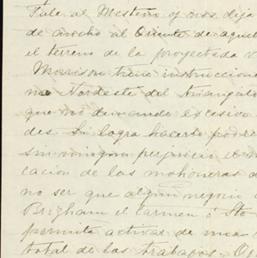 Tule al Mesteño y nos deja
de ancho al Oriente de aquel
el terreno de la proyectada v
Morrison tiene instruccione
no Nordeste del triangulo
que no demande excesivo
des. Si logra hacerlo podre
sin ningun perjuicio el m
cacion de las mohoneras d
no ser que algun negocio u
Brigham el Carmen ó Sto
permita activas de una
total de los trabajos. O